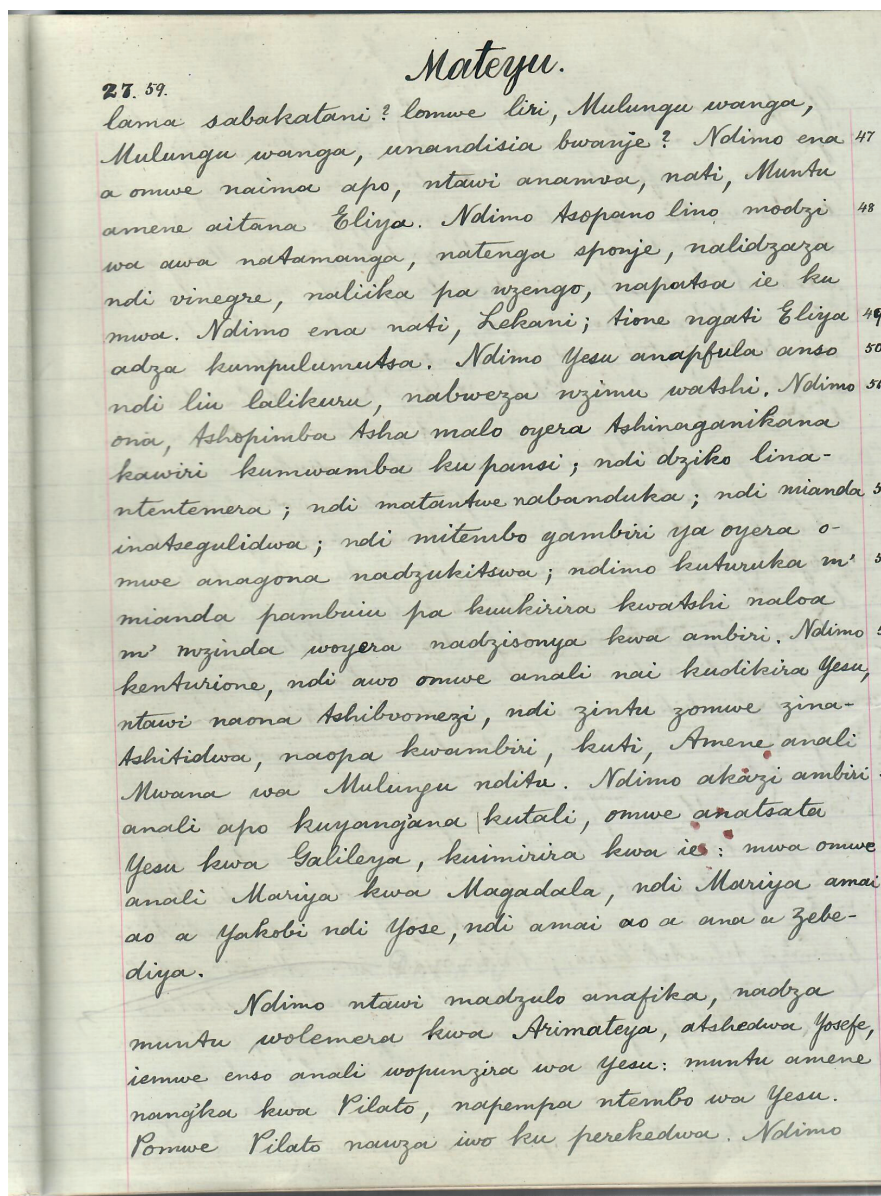 Mateyu.
27. 59.
lama sabakatani? lomwe liri, Mulungu wanga,
Mulungu wanga, unandisia bwanje? Ndimo ena 47
a omwe naima apo, ntawi anamva, nati, Muntu
amene aitana Eliya. Ndimo tsopano lino modzi 48
wa awa natamanga, natenga sponje, nalidzaza
ndi vinegre, naliika pa nzengo, napatsa ie ku
mwa. Ndimo ena nati, Lekani; tione ngati Eliya 49
adza kumpulumutsa. Ndimo Yesu anapfula anso 50
ndi liu lalikuru, nabweza nzimu watshi. Ndimo
ona, tshopimba tsha malo oyera tshinaganikana
kawiri kumwamba ku pansi; ndi dziko lina-
ntentemera; ndi matantwe nabanduka; ndi mianda
inatsegulidwa; ndi mitembo yambiri ya oyera o-
mwe anagona nadzukitswa; ndimo kuturuka m'
mianda pambuiu pa kuukirira kwatshi naloa
m' mzinda woyera nadzisonya kwa ambiri. Ndimo
kenturione, ndi awo omwe anali nai kudikira Yesu,
ntawi naona tshibvomezi, ndi zintu zomwe zina-
tshitidwa, naopa kwambiri, kuti, Amene anali
Mwana wa Mulungu nditu. Ndimo akazi ambiri
anali apo kuyang'ana kutali, omwe anatsata
Yesu kwa Galileya, kuimirira kwa ie: mwa omwe
anali Mariya kwa Magadala, ndi Mariya amai
ao a Yakobi ndi Yose, ndi amai ao a ana a Zebe-
diya.
Ndimo ntawi madzulo anafika, nadza
muntu wolemera kwa Arimateya, atshedwa Yosefe,
iemwe enso anali wopunzira wa Yesu: muntu amene
nang'ka kwa Pilato, napempa ntembo wa Yesu.
Pomwe Pilato nauza iwo ku perekedwa. Ndimo